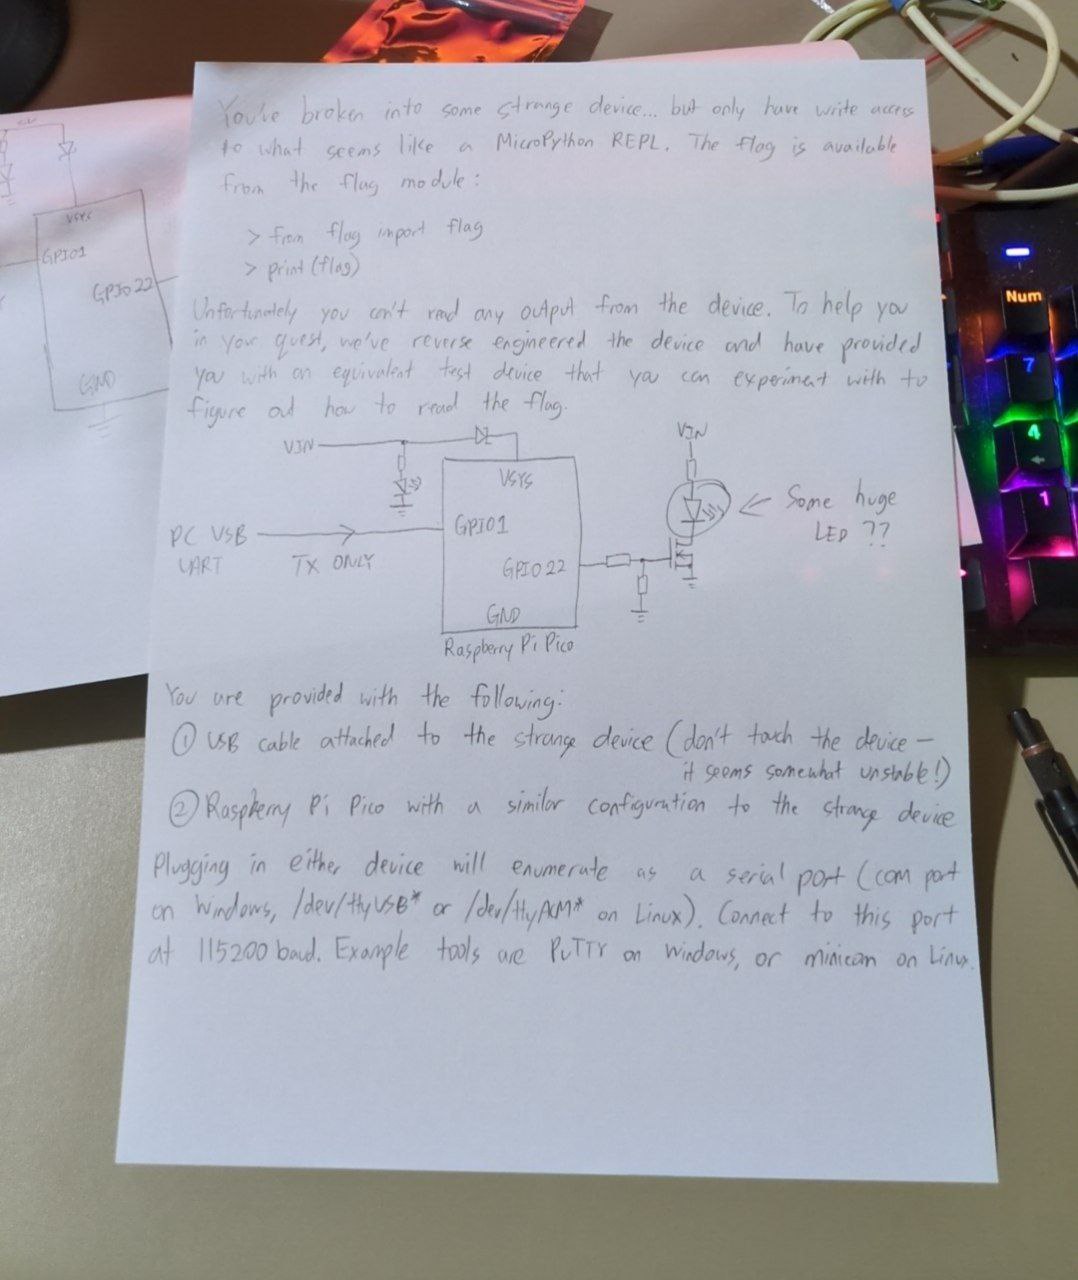 You've broken into some strange device... but only have write access
to what seems like a MicroPython REPL. The flag is available
from the flag module:
> from flag import flag
> print(flag)
Unfortunately you can't read any output from the device. To help you
in your quest, we've reverse engineered the device and have provided
you with an equivalent test device that you can experiment with to
figure out how to read the flag.
VIN
VIN
VSYS
Some huge
LED ??
PC USB
UART
TX ONLY
GPIO1
GPIO22
GND
Raspberry Pi Pico
You are provided with the following:
① USB cable attached to the strange device (don't touch the device —
it seems somewhat unstable!)
② Raspberry Pi Pico with a similar configuration to the strange device
Plugging in either device will enumerate as a serial port (com port
on Windows, /dev/ttyUSB* or /dev/ttyACM* on Linux). Connect to this port
at 115200 baud. Example tools are PuTTY on Windows, or minicom on Linux.
VSYS
GPIO1
GPIO22
GND
Num
7
4
1